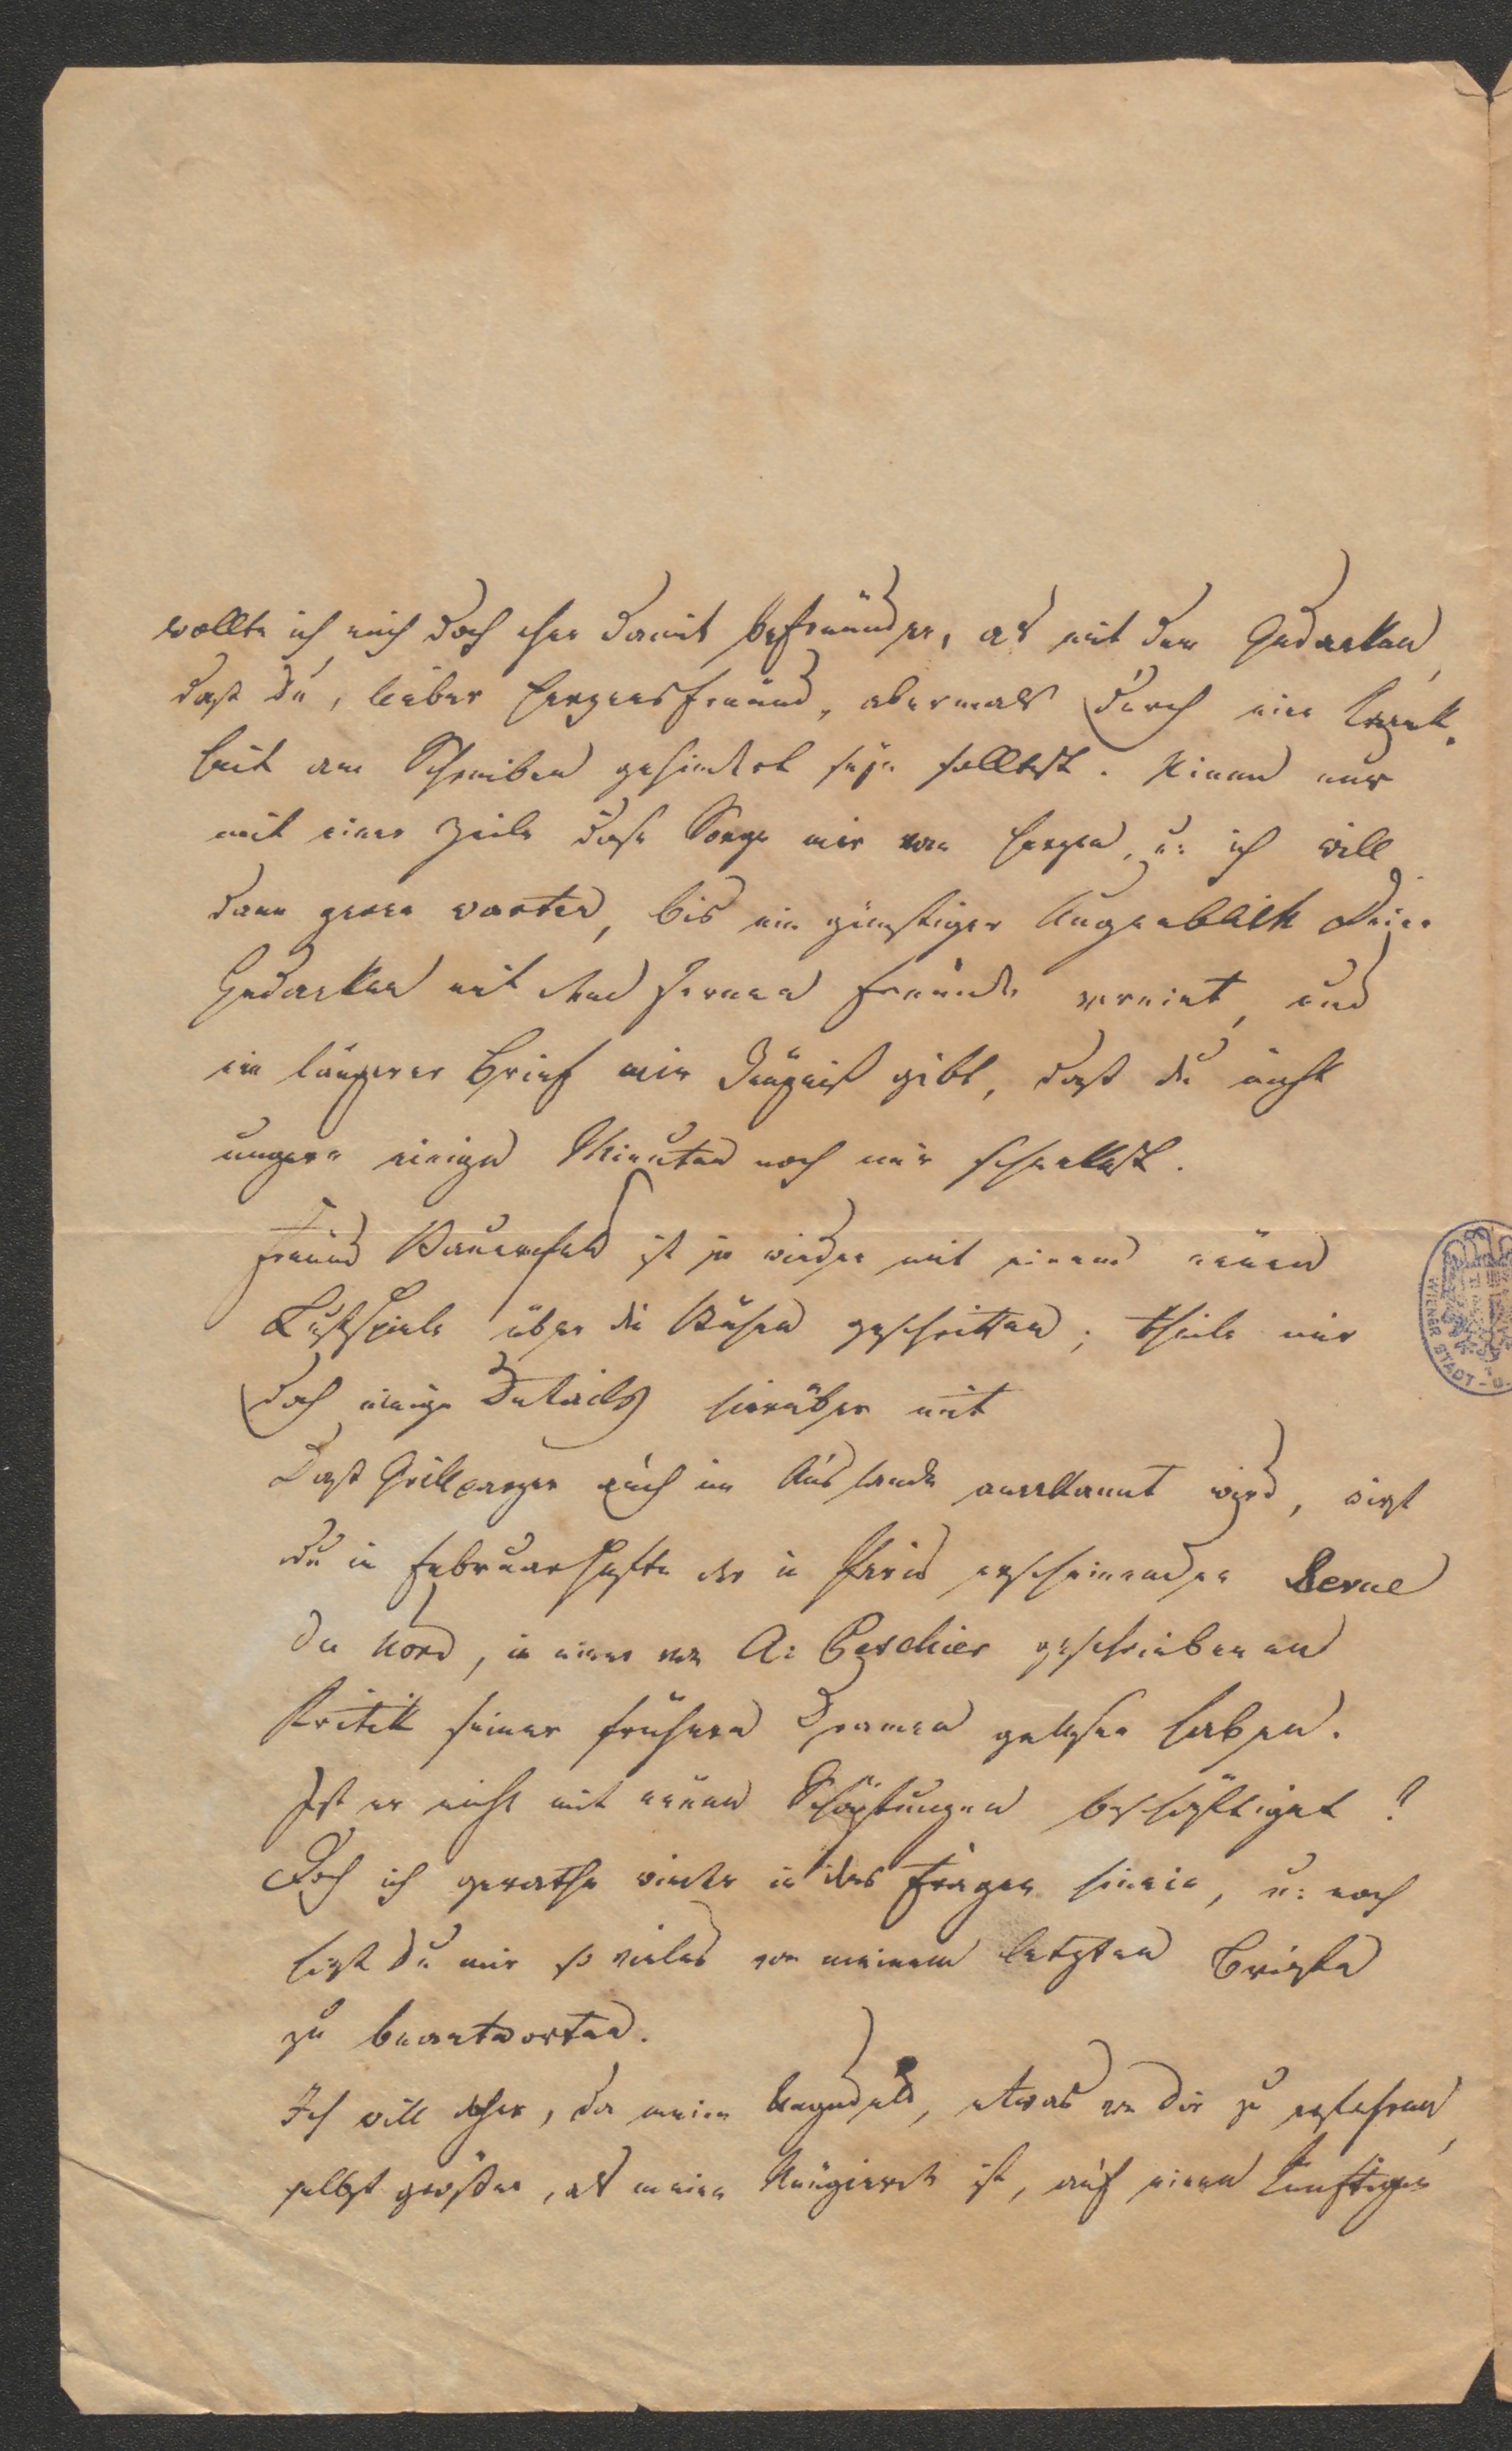 wollte ich mich doch eher damit befreunden, als mit dem Gedanken,
daß du, lieber Herzensfreund, abermals durch eine Krank-
heit am Schreiben gehindert seyn solltest. Nimm nur
mit einer Zeile diese Sorge mir vom Herzen, u: ich will
dann gerne warten, bis ein günstiger Augenblick Deine
Gedanken mit dem fernen Freunde vereint, und
ein längerer Brief mir Zeugniß gibt, daß du nicht
ungern einige Minuten noch mir schenkest.
Freund Bauernfeld ist ja wieder mit einem neuen
Lustspiele über die Bühne geschritten; theile mir
doch einige Details hierüber mit
Daß Grillparzer auch im Auslande anerkannt wird, wirst
du im Februarhefte der in Paris erscheinenden Revue
du Nord, in einer von A: Peschier geschriebenen
Kritik seiner frühern Dramen gelesen haben.
Ist er nicht mit neuen Schöpfungen beschäftiget?
Doch ich gerathe wieder in das Fragen hinein, u: noch
hast du mir so vieles von meinem letzten Briefe
zu beantworten.
Ich will daher, da meine Ungeduld, etwas von dir zu erfahren,
selbst größer, als meine Neugierde ist, auf einen künftigen
WIENER STADT-U.